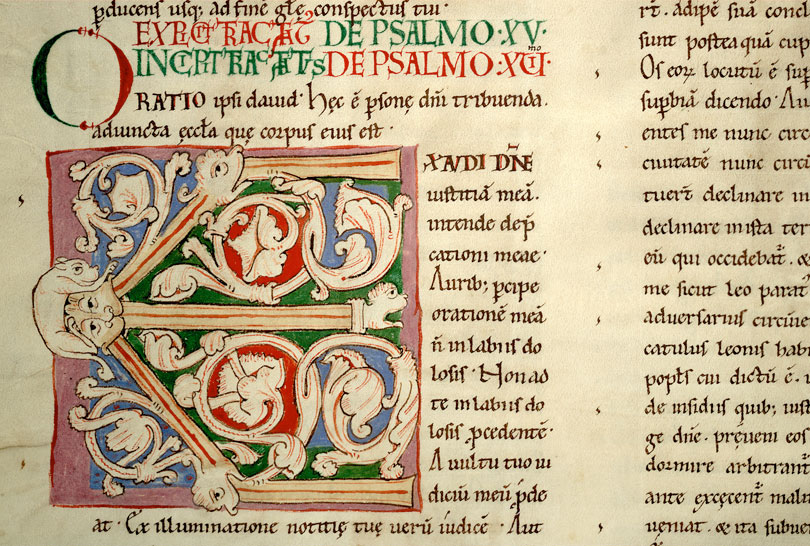 ꝑducens usq; ad finẽ glẽ conspectus tui·
EXPLICIT TRACTATUS DE PSALMO·XV·
INCIPIT TRACTATUS DE PSALMO·XVI·
ORATIO ipsi dauid· Hęc ẽ ꝑsonę dñi tribuenda·
adiuncta ęccła quę corpus eius est·
EXAUDI DÑE
iustitiã meã·
intende dep̃
cationi meae·
Aurib; ꝑcipe
orationẽ meã
ñ in labiis do
losis· Non a te
te in labiis do
losis ꝓcedentẽ·
A uultu tuo iu
diciũ meũ ꝓde
at· Ex illuminatione notitię tuę uerũ iudicẽ· Aut
adipẽ suã concl
sunt postea quã cup
Os eoꝝ locutũ ẽ sup
supbiã dicendo· Au
entes me nunc circũ
ciuitatẽ nunc circũ
tuert̃ declinare in
declinare in ista ter
eũ qui occidebat̃· &
me sicut leo parat
aduersarius circũue
catulus leonis hab
popłs cui dictũ ẽ·
de insidiis quib; iust
ge dñe· pręueni eos
dormire arbitrant
ante excęcent malit
ueniat· & ita subue